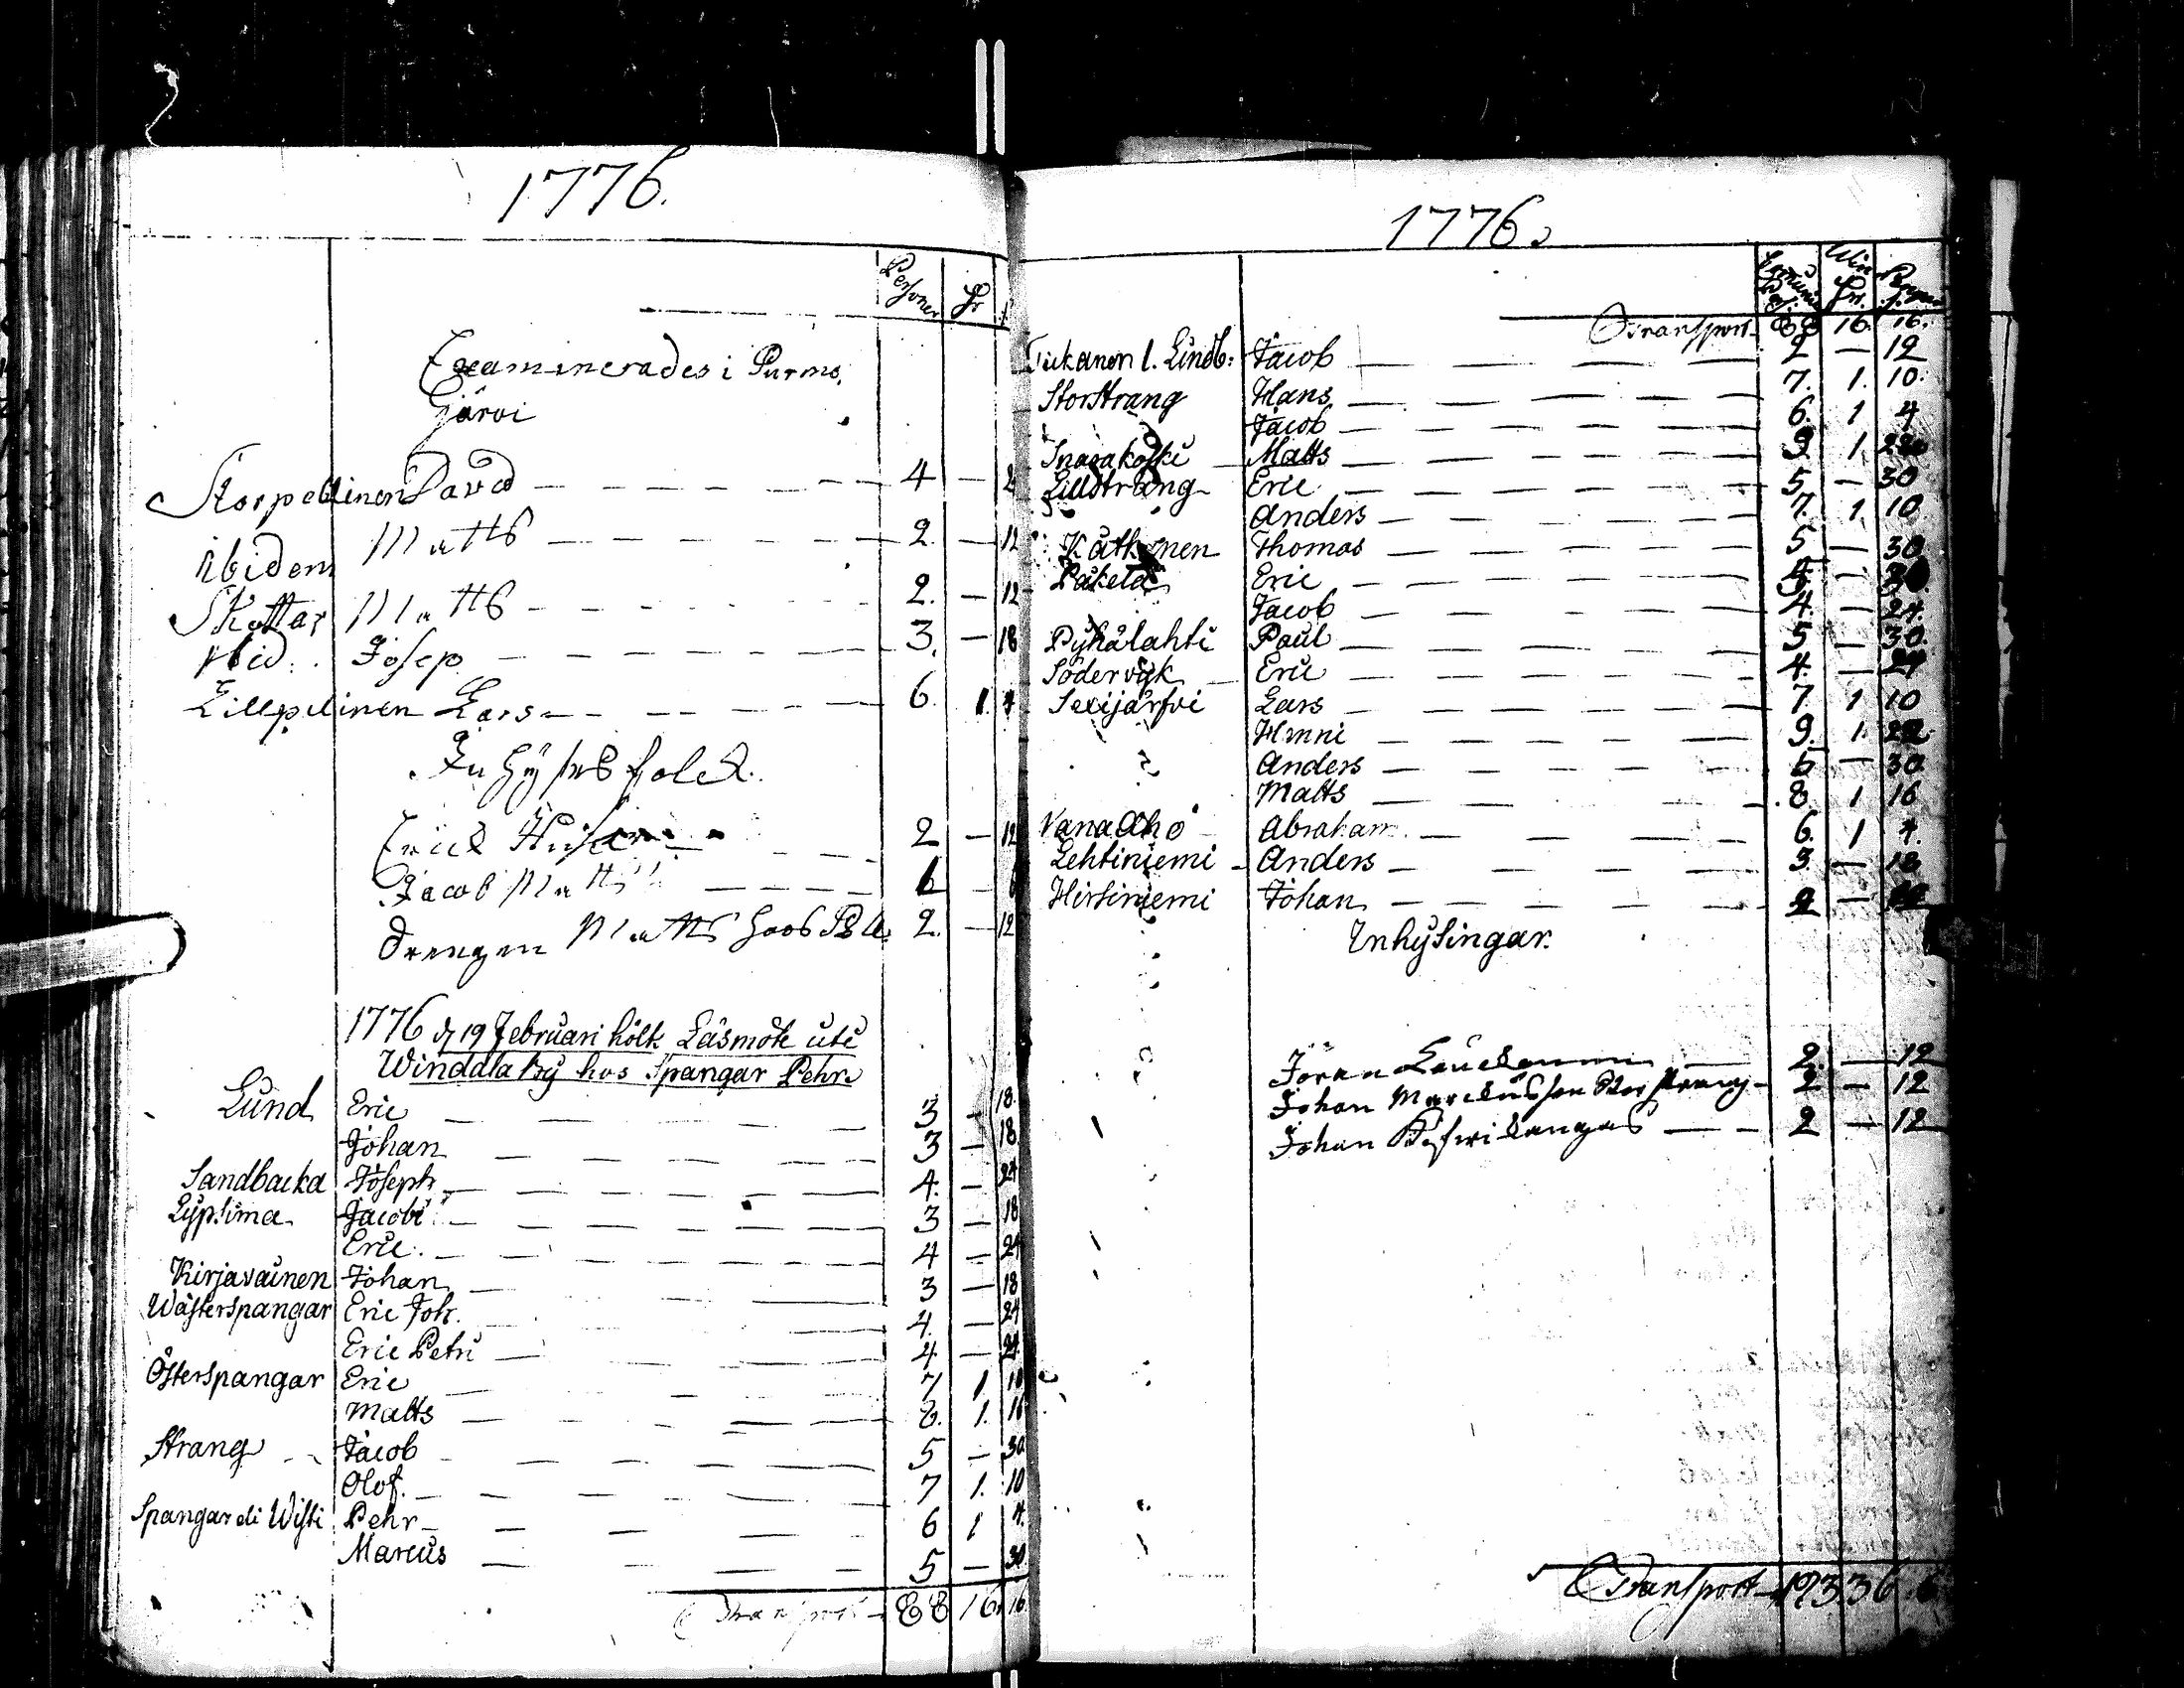 1776.
Personer
Examinerades i Purmo
järvi
Storpellinen David — 4 —
ibidem Matts — 2 — 12
Skottar Matts — 2. — 12
ibid: Josep — 3. — 18
Lillpelinen Lars — 6 1. 4
Inhyses folck.
Erick — 2 — 12
Jacob Matts — 1 — 6
Drengen Matts hoos — 2. — 12
1776 d 19 Februari hölts Läsmöte uti
Winddala by hos Spangar Pehr
Lund Eric — 3 — 18.
Johan — 3 — 18
Sandbacka Joseph — 4. — 24
Jacob — 3 — 18
Eric — 4 — 24
Kirjavainen Johan — 3 — 18
Wästerspangar Eric Joh. — 4. — 24
Eric Petri — 4 — 24
Österspangar Eric — 7 1. 10
Matts — 8. 1. 16
Strang Jacob — 5 — 30
Olof. — 7 1. 10
Spangar eli Wisti Pehr — 6 1 4.
Marcus — 5 — 30
Transport — 88 16. 16
1776.
Transport — 88 16. 16.
Jacob — 2 — 12
Storstrang Hans — 7. 1. 10.
Jacob — 6. 1 4
Matts — 9 1
Lillstrang Eric — 5 — 30
Anders — 7. 1. 10
Thomas — 5 — 30
Eric —
Jacob — 4. — 24.
Pyhälahti Paul — 5 — 30.
Södervik Eric — 4. — 24
Sexijärfvi Lars — 7 1 10
Hinni — 9. 1. 22.
Anders — 5 — 30.
Matts — 8. 1 16
Vanaaho Abraham — 6. 1 4.
Lehtiniemi Anders — 3. — 18
Hirsiniemi Johan —
Inhysingar.
Jöran — 2. — 12
Johan Marcusson Storstrang — 2 — 12
Johan — 2 — 12
Transport — 193. 36 6